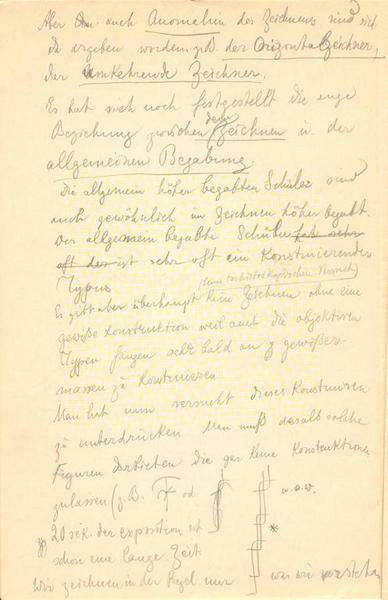 Aber auch Anomalien des Zeichnens sind
zu ergeben worden z.B. der Horizontalzeichner,
der umkehrende Zeichner.
Es hat sich noch festgestellt die enge
Beziehung zwischen dem Zeichnen u. der
allgemeinen Begabung
Die allgemein höher begabten Schüler sind
auch gewöhnlich im Zeichnen höher begabt.
Der allgemein begabte Schüler hat sehr
oft der ist sehr oft ein Konstruierender
Typus (beim tachistoskopischen Versuch)
Es gibt aber überhaupt kein Zeichnen ohne eine
gewisse Konstruktion weil auch die objektiven
Typen fangen sehr bald an gewisser-
massen zu konstruieren
Man hat nun versucht dieses Konstruieren
zu unterdrücken Man muß deshalb solche
Figuren darbieten die gar keine Konstruktionen
zulassen (z.B. od. u.s.w.
20 sek. der exposition ist *
schon eine lange Zeit
Wir zeichnen in der Regel nur was wir verstehen